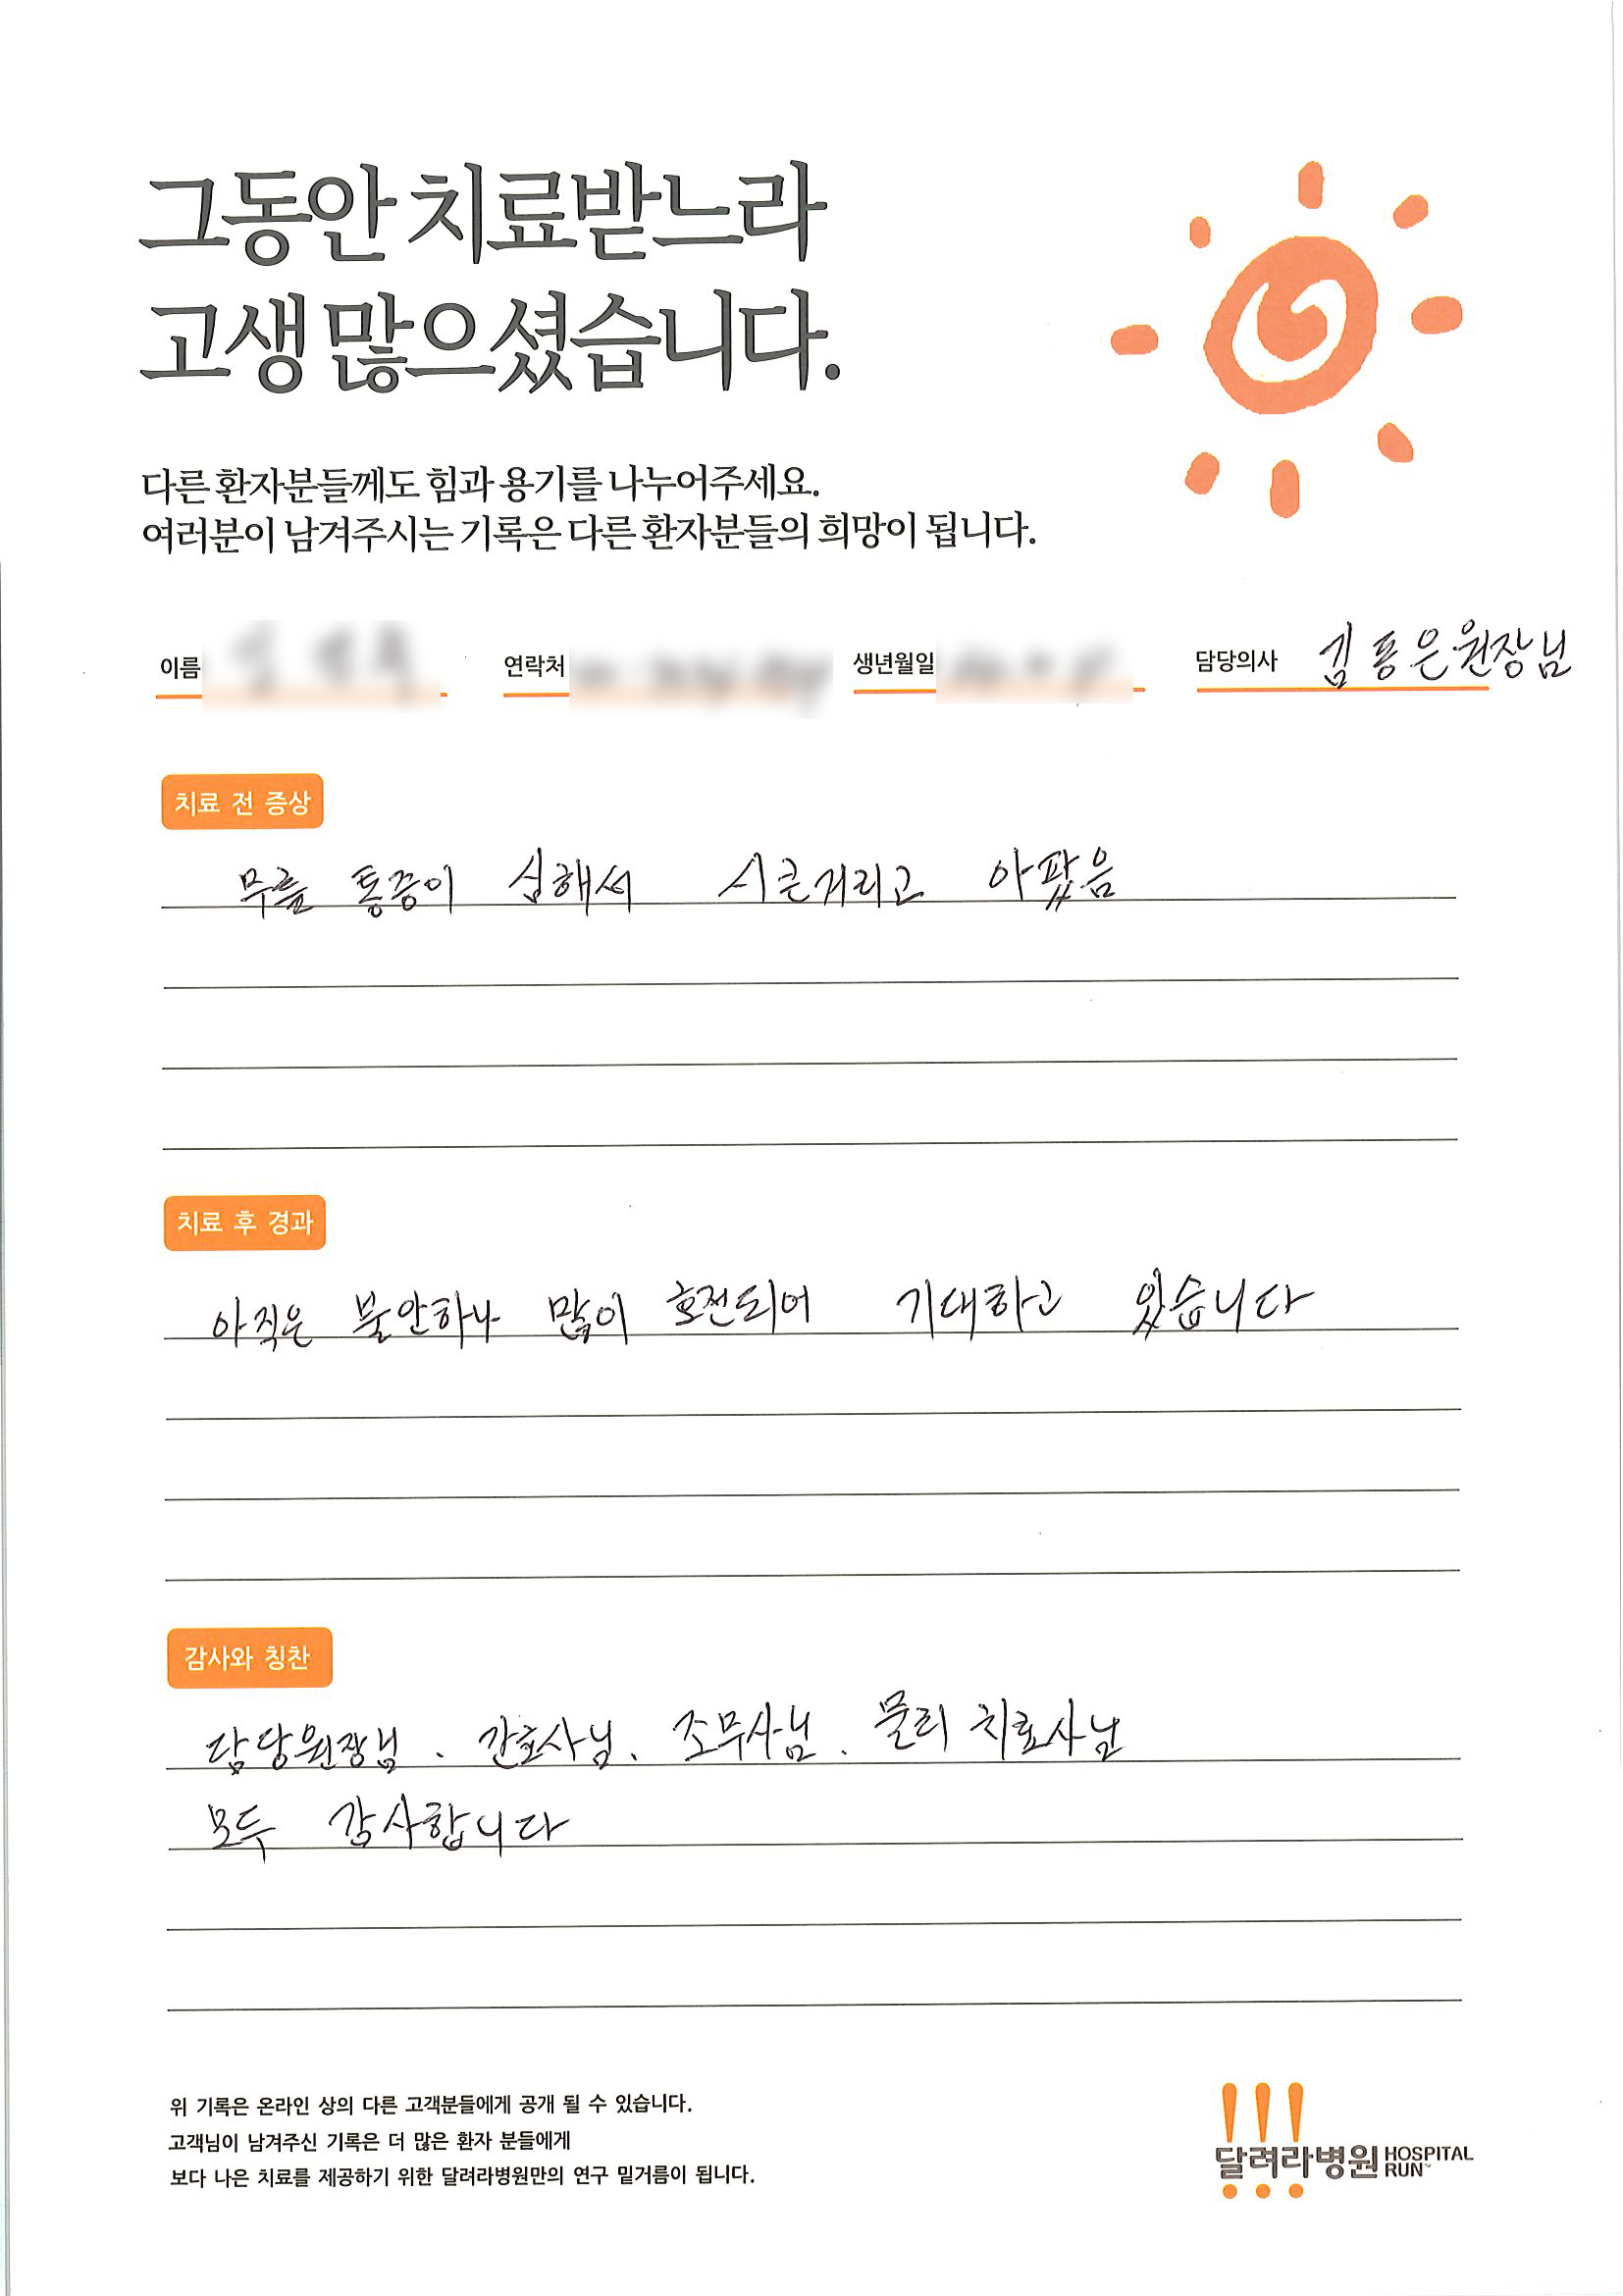 그동안 치료받느라
고생 많으셨습니다.
다른 환자분들께도 힘과 용기를 나누어주세요.
여러분이 남겨주시는 기록은 다른 환자분들의 희망이 됩니다.
이름 연락처 생년월일 담당의사 김용은원장님
치료 전 증상
무릎 통증이 심해서 시큰거리고 아팠음
치료 후 경과
아직은 불안하나 많이 호전되어 기대하고 있습니다
감사와 칭찬
담당원장님. 간호사님. 조무사님. 물리 치료사님
모두 감사합니다
위 기록은 온라인 상의 다른 고객분들에게 공개 될 수 있습니다.
고객님이 남겨주신 기록은 더 많은 환자 분들에게
보다 나은 치료를 제공하기 위한 달려라병원만의 연구 밑거름이 됩니다.
달려라병원 HOSPITAL RUN™